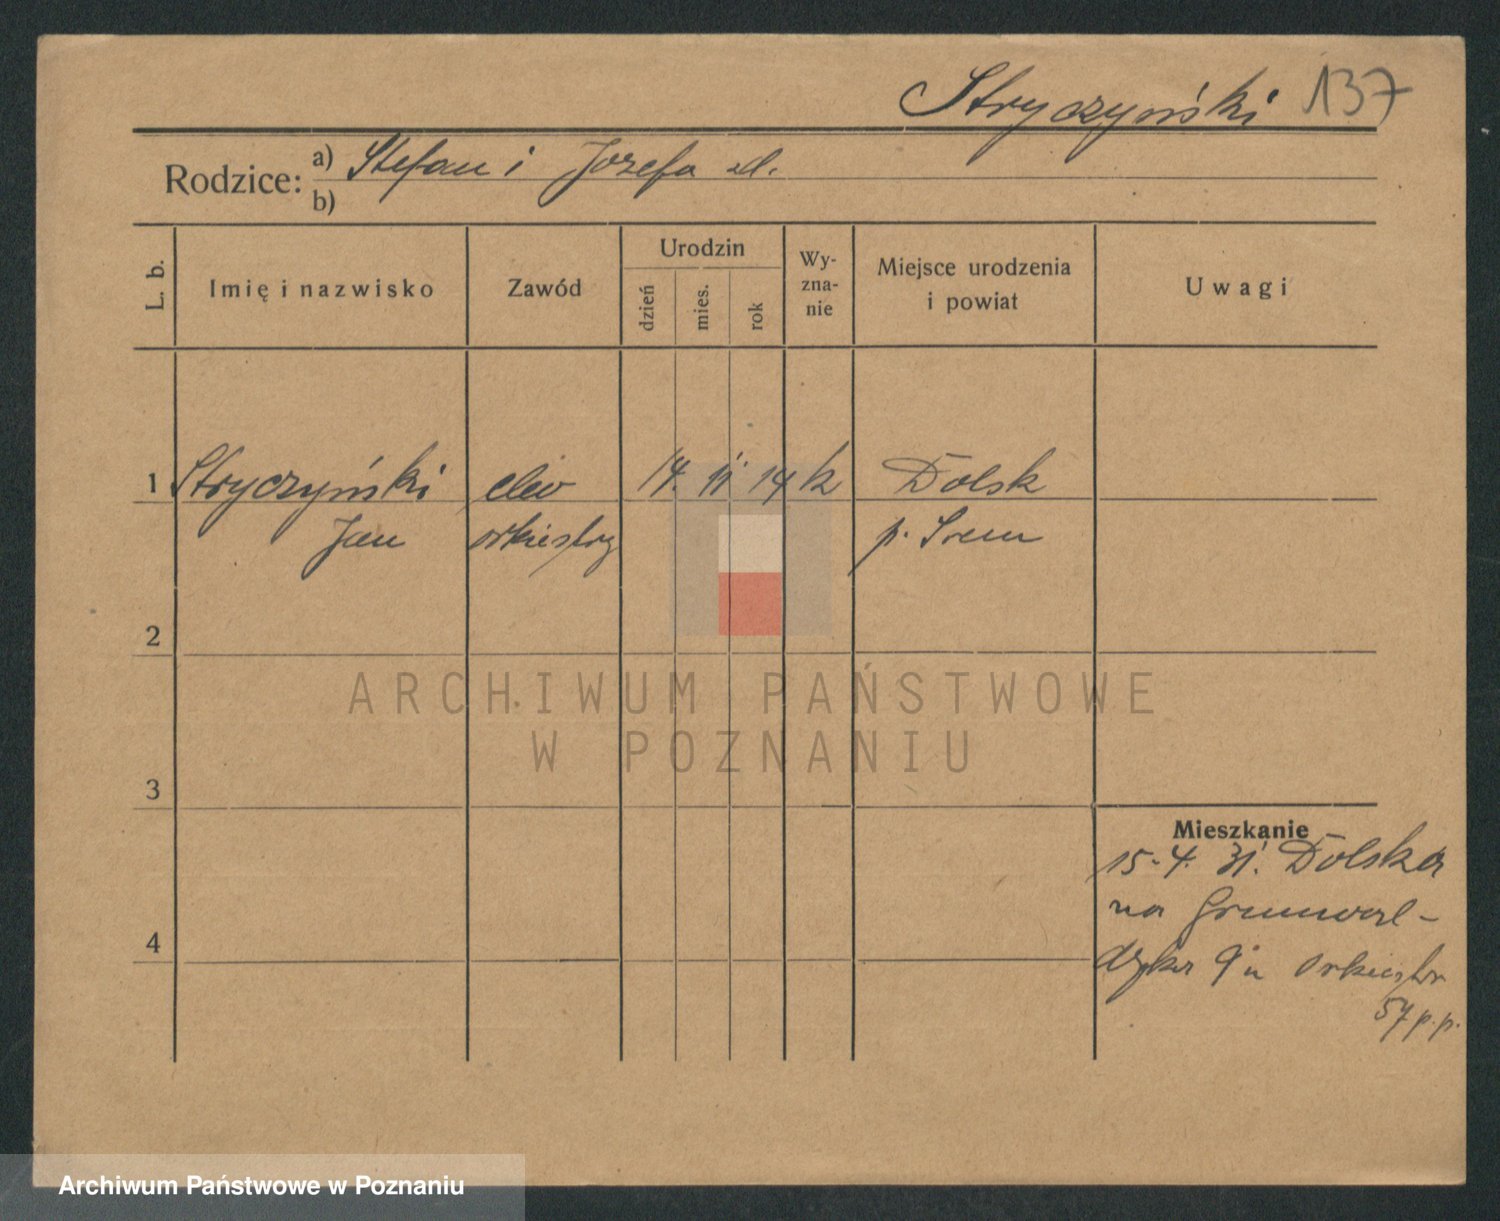 Stryczyński 137
Rodzice: a) Stefan i Józefa zd.
b)
L. b.
Imię i nazwisko
Zawód
Urodzin
dzień
mies.
rok
Wy-
zna-
nie
Miejsce urodzenia
i powiat
Uwagi
1 Stryczyński elew 14. 11 14 k Dolsk
Jan orkiestry p. Śrem
2
3
4
Mieszkanie
15.4.31. Dolska
na Grunwal-
dzka 9 u orkiestr
57 p.p.
ARCHIWUM PAŃSTWOWE
W POZNANIU
Archiwum Państwowe w Poznaniu